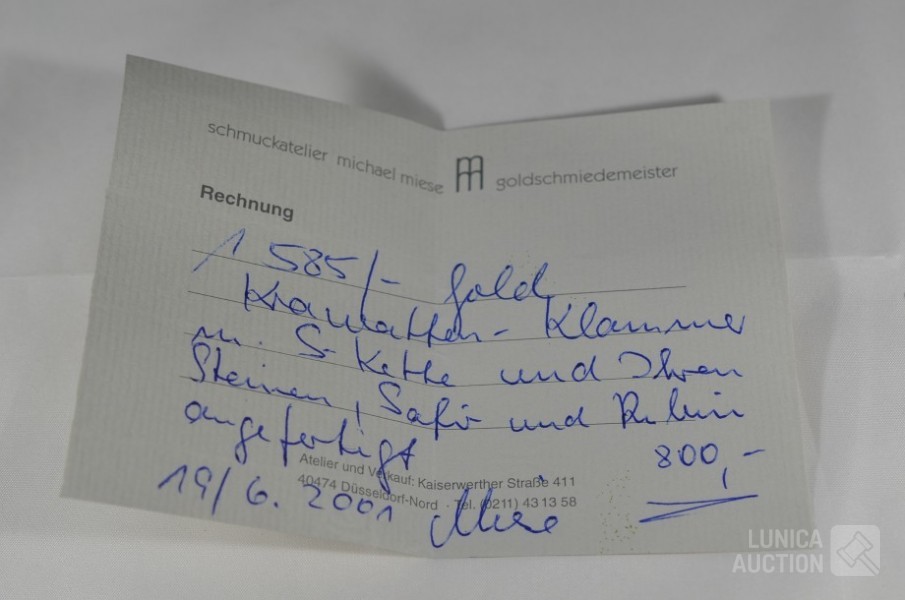 schmuckatelier michael miese m goldschmiedemeister
Rechnung
1 585/- Gold
Krawatten-Klammer
m. S-Kette und Ihren
Steinen, Safir und Rubin
angefertigt
800,-
Atelier und Verkauf: Kaiserwerther Straße 411
40474 Düsseldorf-Nord · Tel. (0211) 43 13 58
19/6. 2001 Miese
LUNICA
AUCTION